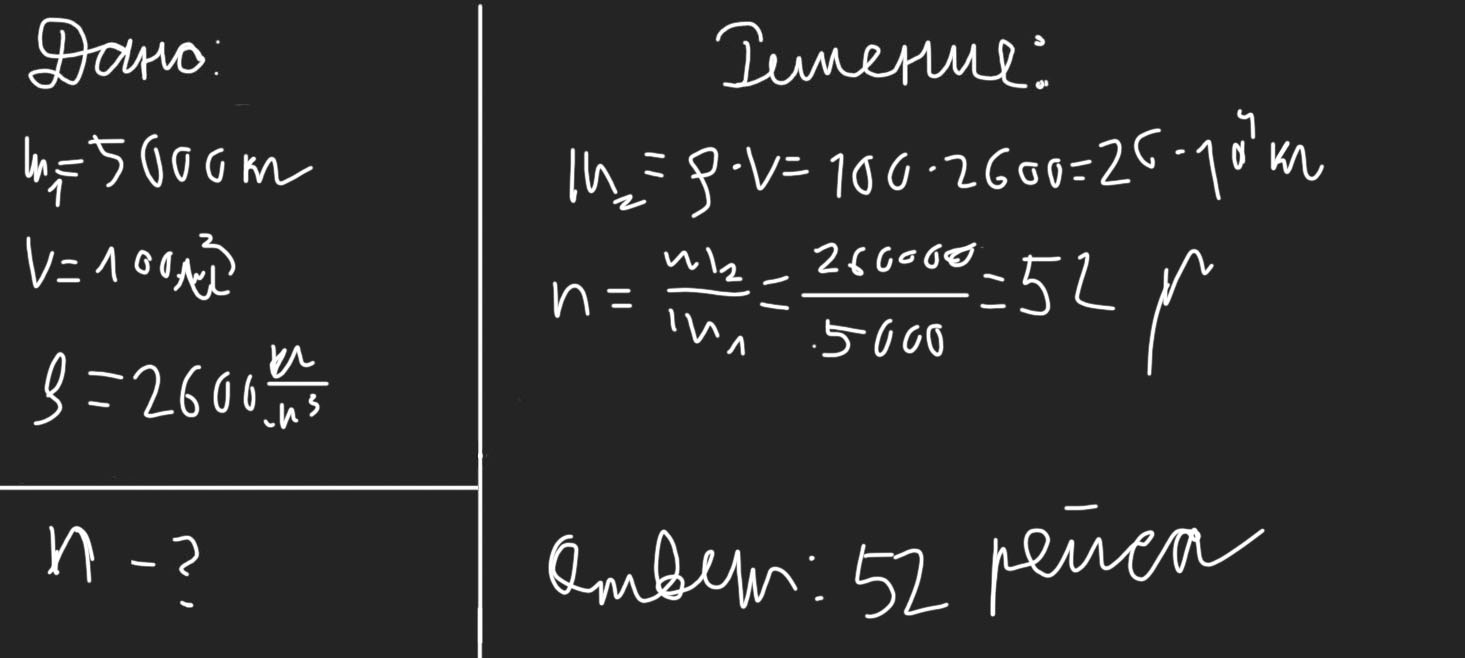 Дано:
m₁=5000 кг
V=100 м³
ρ=2600 кг/м³
n - ?
Решение:
m₂=ρ·V=100·2600=26·10⁴ кг
n=m₂/m₁=260000/5000=52 р
Ответ: 52 рейса